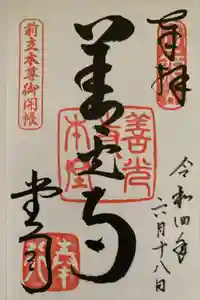 奉拝
令和四年
六月十八日
善光寺
善光
本堂
堂司
前立本尊御開帳